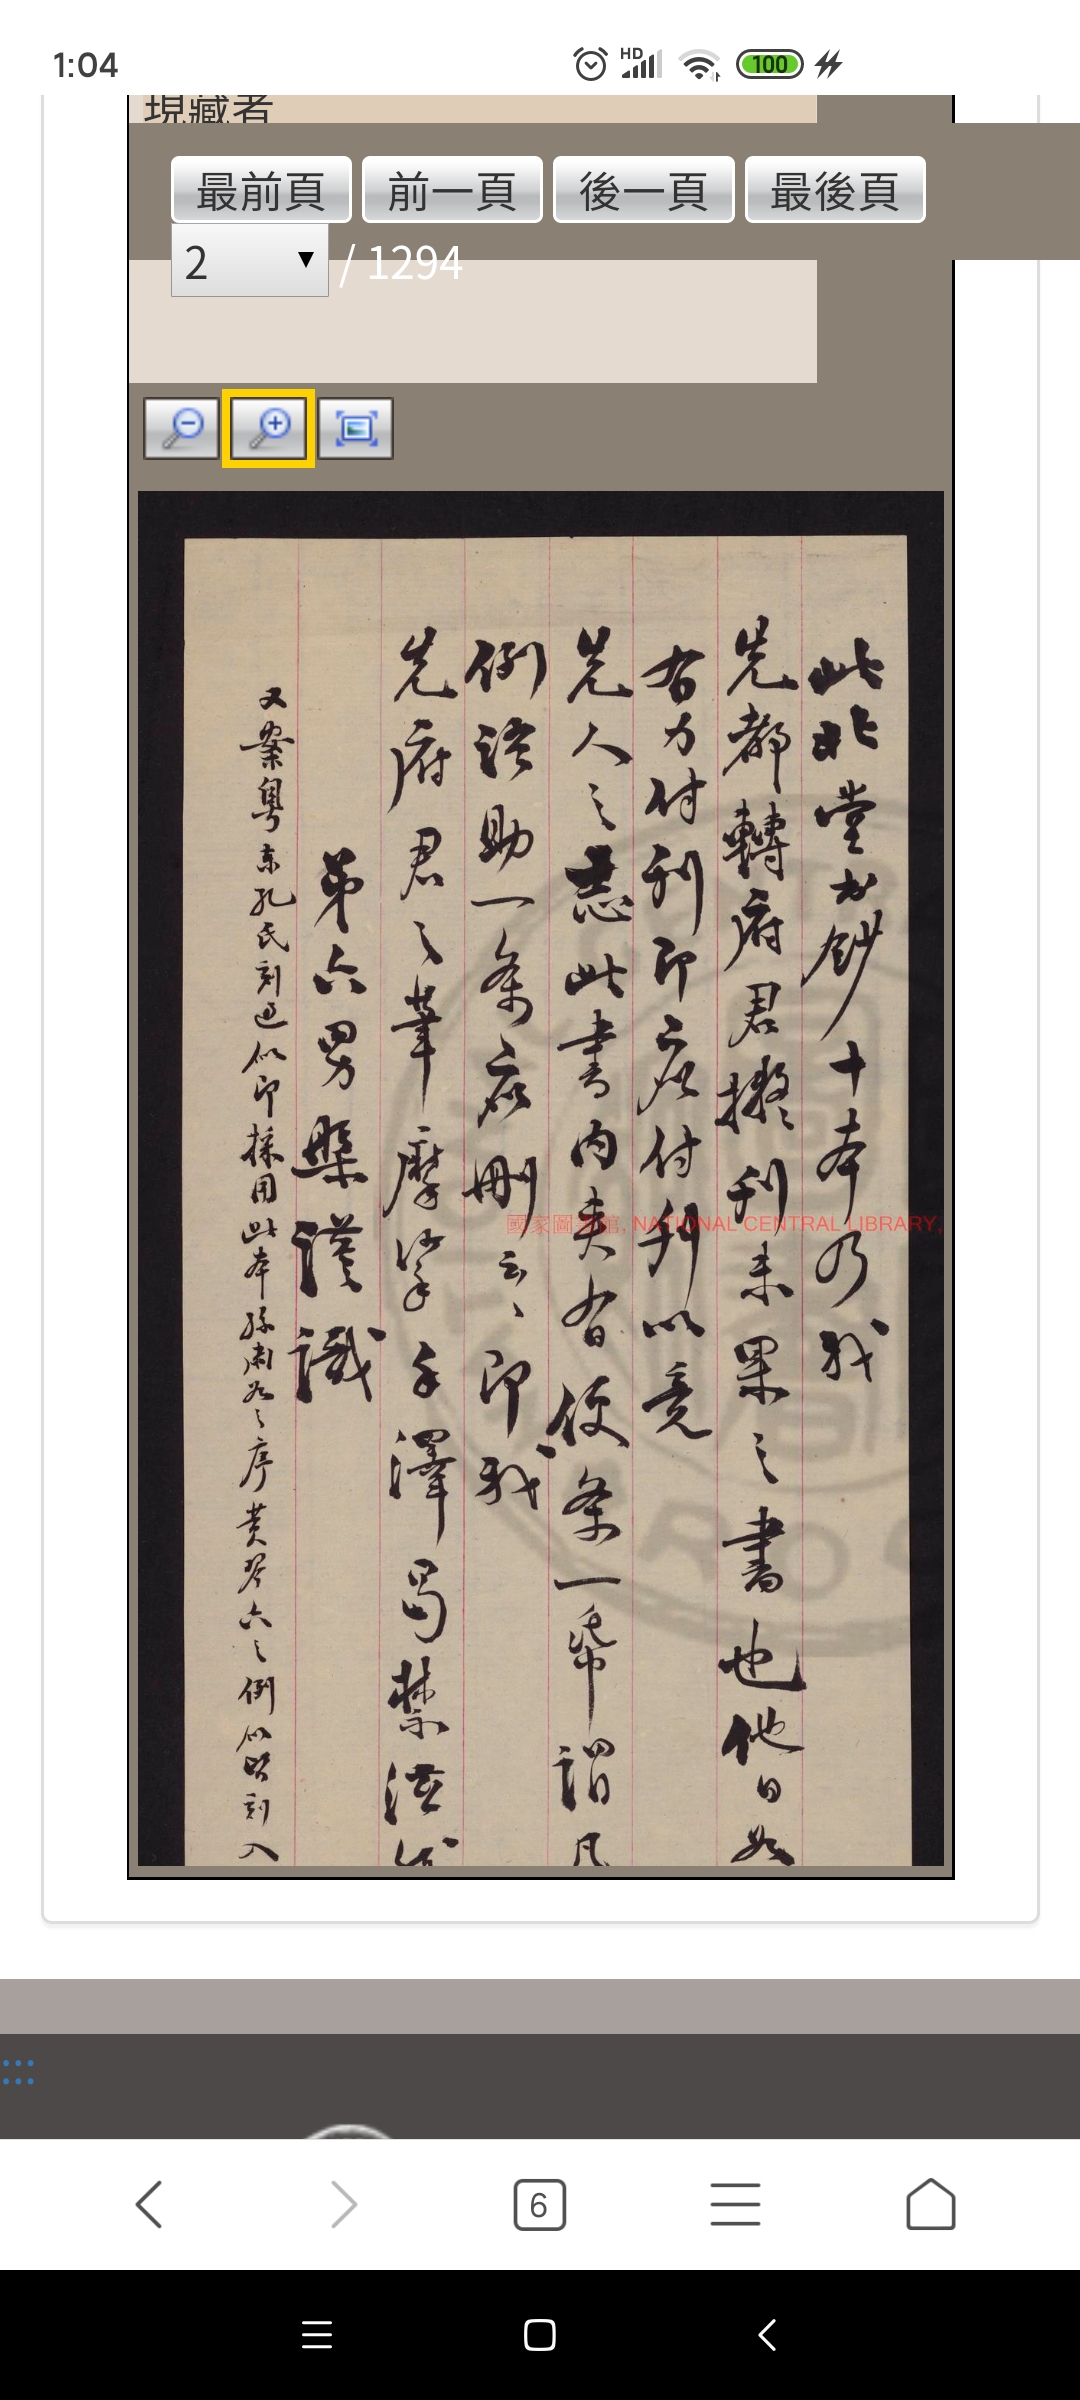 1:04
HD
100
現藏者
最前頁 前一頁 後一頁 最後頁
2 / 1294
此北堂書鈔十本乃我
先都轉府君擬刊未果之書也他日如
有力付刊即應付刊以竟
先人之志此書內夾有條一帋謂凡
例語助一條應刪云云即我
先府君之筆摩挲手澤曷禁泫然
第六男槃謹識
又案粵東孔氏刻過似即採用此本孫之序黃六之例似皆刻入
國家圖書館, NATIONAL CENTRAL LIBRARY,
6